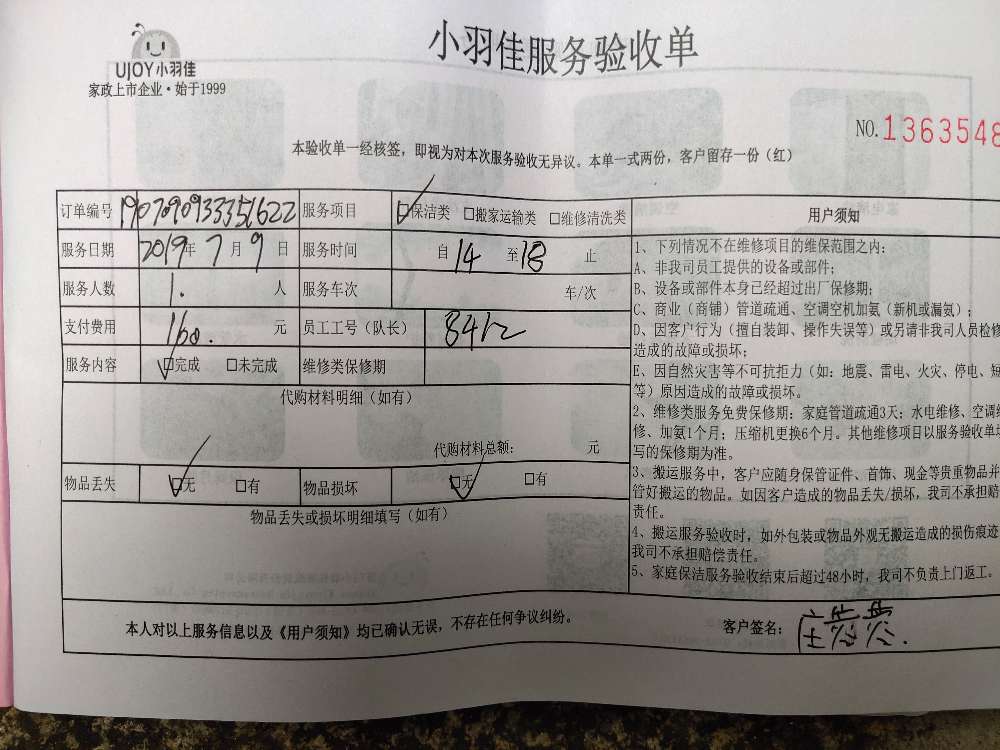 UJOY小羽佳
家政上市企业·始于1999
小羽佳服务验收单
NO.1363548
本验收单一经核签，即视为对本次服务验收无异议。本单一式两份，客户留存一份（红）
订单编号 服务项目 保洁类 搬家运输类 维修清洗类
服务日期 2019年7月9日 服务时间 自14至18止
服务人数 1. 人 服务车次 车/次
支付费用 160. 元 员工工号（队长）
服务内容 完成 未完成 维修类保修期
代购材料明细（如有）
代购材料总额： 元
物品丢失 无 有 物品损坏 无 有
物品丢失或损坏明细填写（如有）
用户须知
1、下列情况不在维修项目的维保范围之内：
A、非我司员工提供的设备或部件；
B、设备或部件本身已经超过出厂保修期；
C、商业（商铺）管道疏通、空调空机加氨（新机或漏氨）；
D、因客户行为（擅自装卸、操作失误等）或另请非我司人员检修
造成的故障或损坏；
E、因自然灾害等不可抗拒力（如：地震、雷电、火灾、停电、短
等）原因造成的故障或损坏。
2、维修类服务免费保修期：家庭管道疏通3天；水电维修、空调维
修、加氨1个月；压缩机更换6个月。其他维修项目以服务验收单填
写的保修期为准。
3、搬运服务中，客户应随身保管证件、首饰、现金等贵重物品并
管好搬运的物品。如因客户造成的物品丢失/损坏，我司不承担赔
责任。
4、搬运服务验收时，如外包装或物品外观无搬运造成的损伤痕迹
我司不承担赔偿责任。
5、家庭保洁服务验收结束后超过48小时，我司不负责上门返工。
本人对以上服务信息以及《用户须知》均已确认无误，不存在任何争议纠纷。
客户签名：